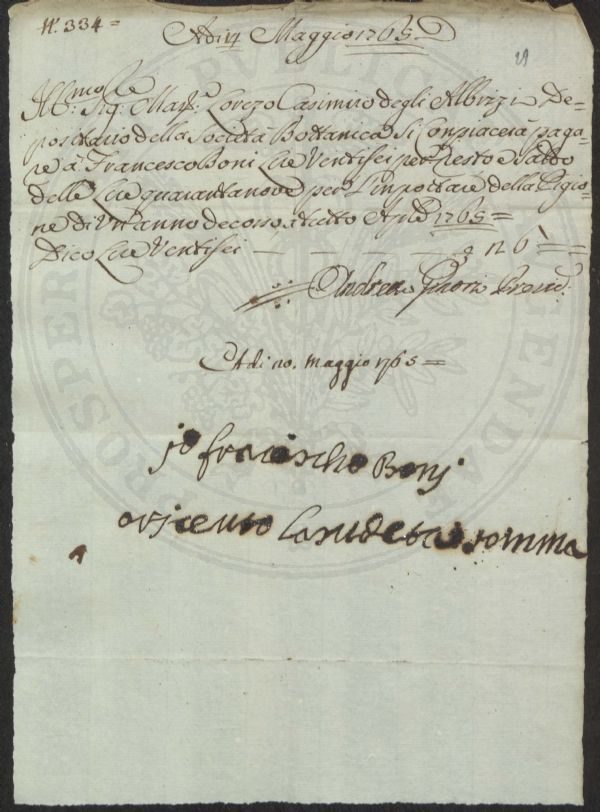 N.° 334=
Adi 17 Maggio 1765
Ill:mo Sig:re Mar: Lorezo Casimiro degli Albizzi De-
positario della Società Bottanica Si Conpiacerà paga-
re à Francesco Boni Lire Ventisei per Resto e Saldo
delle Lire quarantanove per l'inportare della Pigio-
ne di Un anno decorso, a tutto Aple 1765=
Dico Lire Ventisei — — — — 26
Andrea Prov:
Adi 20. Maggio 1765=
jo francischo Bonj
o riceuto la sudeta somma
PROSPER PUBLICAE